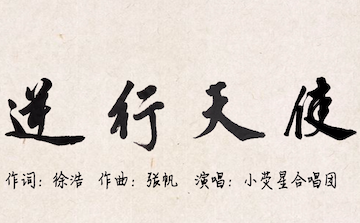 逆行天使
作词：徐浩 作曲：张帆 演唱：小荧星合唱团